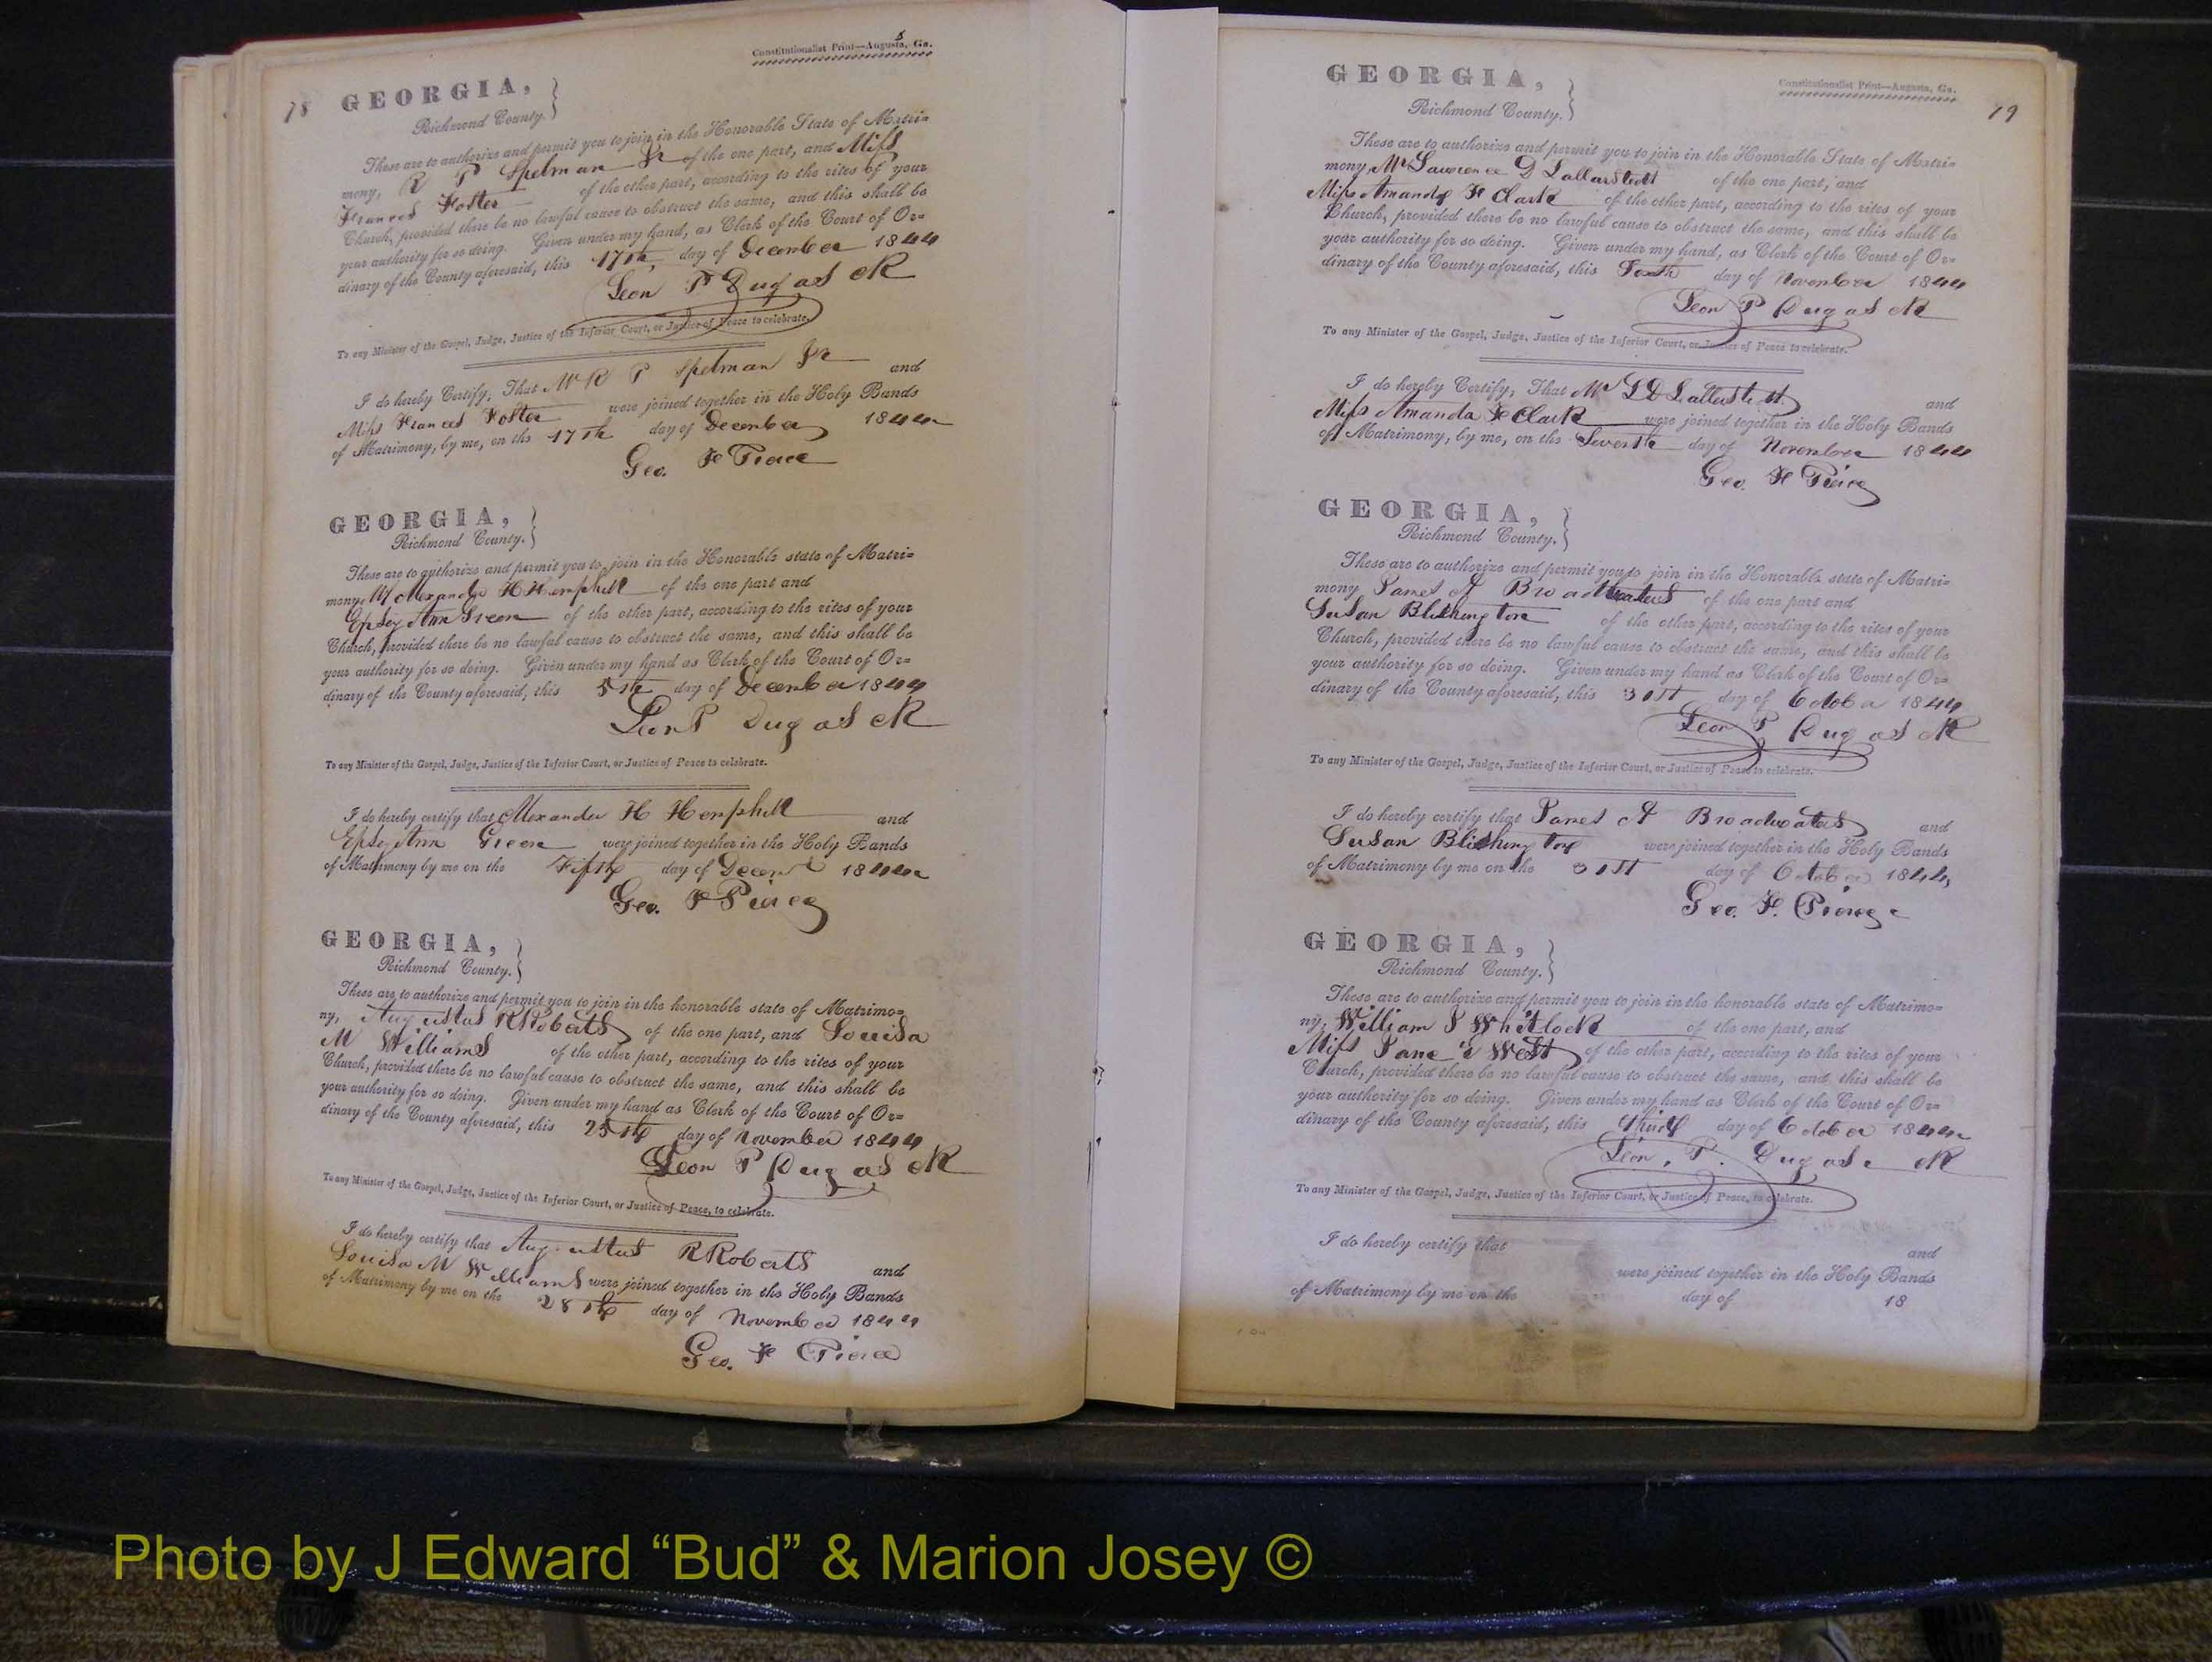 Constitutionalist Print—Augusta, Ga.
78 GEORGIA,
Richmond County.
These are to authorize and permit you to join in the Honorable State of Matri=
mony, R P Spelman Jr of the one part, and Miss
Frances Foster of the other part, according to the rites of your
Church, provided there be no lawful cause to obstruct the same, and this shall be
your authority for so doing. Given under my hand, as Clerk of the Court of Or=
dinary of the County aforesaid, this 17th day of December 1844
Leon P Dugas Clk
To any Minister of the Gospel, Judge, Justice of the Inferior Court, or Justice of Peace to celebrate.
I do hereby Certify, That Mr R P Spelman Jr and
Miss Frances Foster were joined together in the Holy Bands
of Matrimony, by me, on the 17th day of December 1844
Geo. F Pierce
GEORGIA,
Richmond County.
These are to authorize and permit you to join in the Honorable state of Matri=
mony, Alexander H Hemphill of the one part and
Epsey Ann Green of the other part, according to the rites of your
Church, provided there be no lawful cause to obstruct the same, and this shall be
your authority for so doing. Given under my hand as Clerk of the Court of Or=
dinary of the County aforesaid, this 5th day of December 1844
Leon P Dugas Clk
To any Minister of the Gospel, Judge, Justice of the Inferior Court, or Justice of Peace to celebrate.
I do hereby certify that Alexander H Hemphill and
Epsey Ann Green were joined together in the Holy Bands
of Matrimony by me on the Fifth day of Decem 1844
Geo. F Pierce
GEORGIA,
Richmond County.
These are to authorize and permit you to join in the honorable state of Matrimo=
ny, Augustus R Roberts of the one part, and Louisa
M Williams of the other part, according to the rites of your
Church, provided there be no lawful cause to obstruct the same, and this shall be
your authority for so doing. Given under my hand as Clerk of the Court of Or=
dinary of the County aforesaid, this 25th day of November 1844
Leon P Dugas Clk
To any Minister of the Gospel, Judge, Justice of the Inferior Court, or Justice of Peace, to celebrate.
I do hereby certify that Augustus R Roberts and
Louisa M Williams were joined together in the Holy Bands
of Matrimony by me on the 28th day of November 1844
Geo. F Pierce
Constitutionalist Print—Augusta, Ga.
GEORGIA, 79
Richmond County.
These are to authorize and permit you to join in the Honorable State of Matri=
mony, Mr Lawrence D Lallerstedt of the one part, and
Miss Amanda F Clark of the other part, according to the rites of your
Church, provided there be no lawful cause to obstruct the same, and this shall be
your authority for so doing. Given under my hand, as Clerk of the Court of Or=
dinary of the County aforesaid, this day of November 1844
Leon P Dugas Clk
To any Minister of the Gospel, Judge, Justice of the Inferior Court, or Justice of Peace to celebrate.
I do hereby Certify, That Mr L D Lallerstedt and
Miss Amanda F Clark were joined together in the Holy Bands
of Matrimony, by me, on the Seventh day of November 1844
Geo. F Pierce
GEORGIA,
Richmond County.
These are to authorize and permit you to join in the Honorable state of Matri=
mony James A Broadwaters of the one part and
Susan of the other part, according to the rites of your
Church, provided there be no lawful cause to obstruct the same, and this shall be
your authority for so doing. Given under my hand as Clerk of the Court of Or=
dinary of the County aforesaid, this 31st day of October 1844
Leon P Dugas Clk
To any Minister of the Gospel, Judge, Justice of the Inferior Court, or Justice of Peace to celebrate.
I do hereby certify that James A Broadwaters and
Susan were joined together in the Holy Bands
of Matrimony by me on the 31st day of October 1844
Geo. F. Pierce
GEORGIA,
Richmond County.
These are to authorize and permit you to join in the honorable state of Matrimo=
ny, William J Whitlock of the one part, and
Miss Jane E West of the other part, according to the rites of your
Church, provided there be no lawful cause to obstruct the same, and this shall be
your authority for so doing. Given under my hand as Clerk of the Court of Or=
dinary of the County aforesaid, this third day of October 1844
Leon. P. Dugas Clk
To any Minister of the Gospel, Judge, Justice of the Inferior Court, or Justice of Peace, to celebrate.
I do hereby certify that and
were joined together in the Holy Bands
of Matrimony by me on the day of 18
Photo by J Edward “Bud” & Marion Josey ©